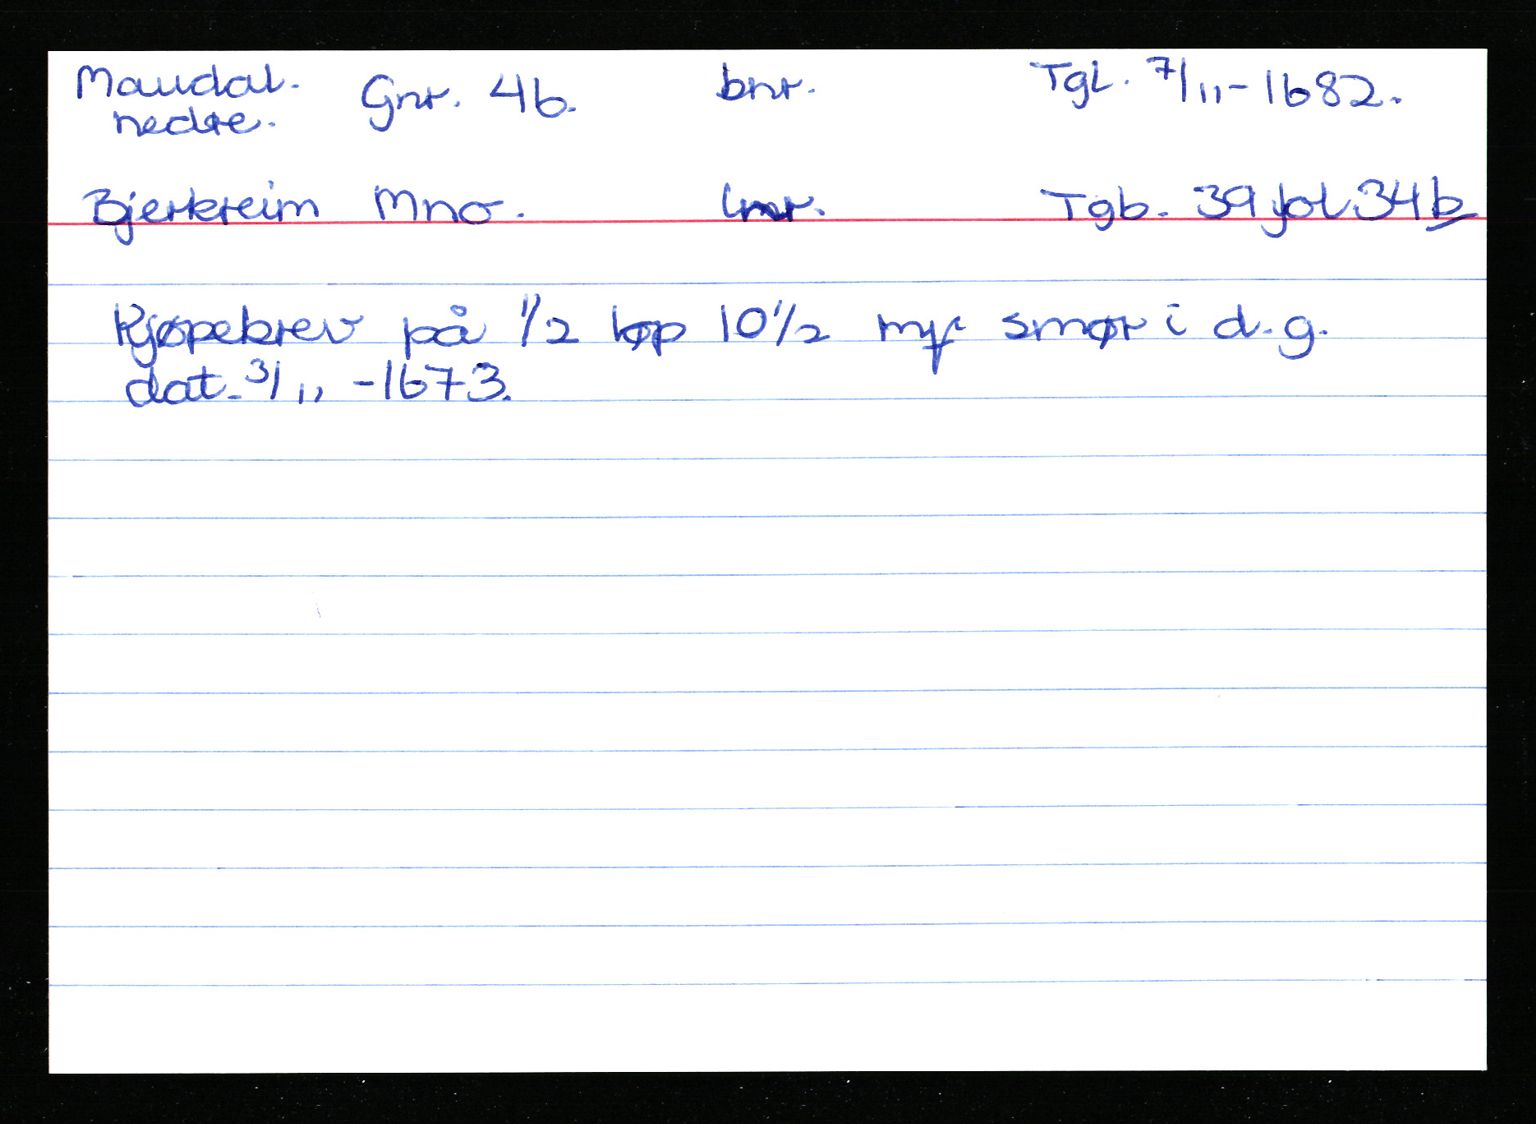 Maudal. Gnr. 46. bnr. Tgl. 7/11-1682.
nedre.
Bjerkreim Mno. lnr. Tgb. 39 fol 34b
Kjøpebrev på 1/2 løp 10 1/2 mk smør i d.g.
dat. 3/11 -1673.